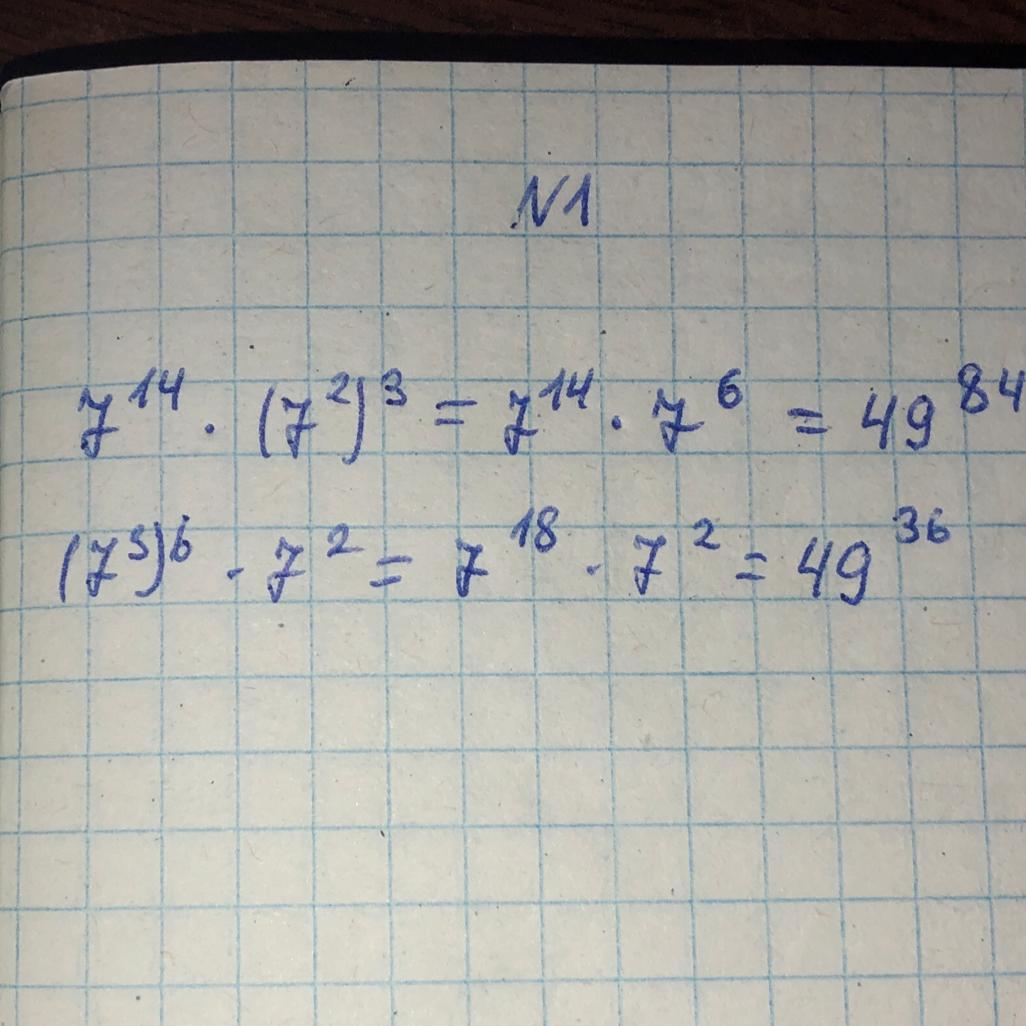 N1
7^14 · (7^2)^3 = 7^14 · 7^6 = 49^84
(7^3)^6 · 7^2 = 7^18 · 7^2 = 49^36